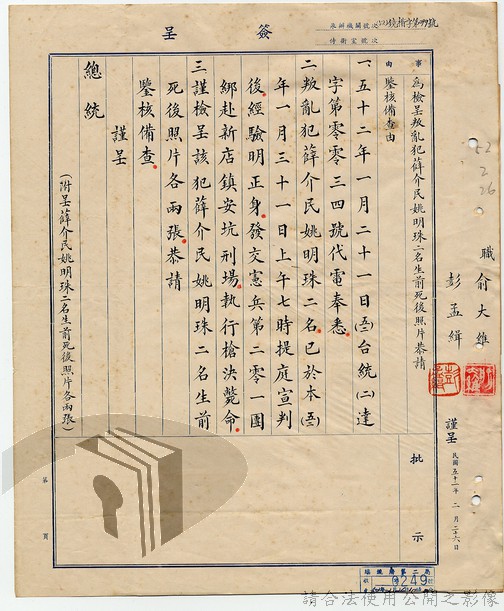 簽呈
事由
為檢呈叛亂犯薛介民姚明珠二名生前死後照片恭請
鑒核備查由
一、五十二年一月二十一日(52)台統(二)達
字第零零三四號代電奉悉。
二、叛亂犯薛介民姚明珠二名,已於本(52)
年一月三十一日上午七時提庭宣判
後,經驗明正身,發交憲兵第二零一團
綁赴新店鎮安坑刑場,執行槍決斃命。
三、謹檢呈該犯薛介民姚明珠二名生前
死後照片各兩張,恭請
鑒核備查。
謹呈
總統
(附呈薛介民姚明珠二名生前死後照片各兩張)
職俞大維
彭孟緝
謹呈
民國五十二年二月二十六日
批示
第頁
52
2
26
249
請合法使用公開之影像